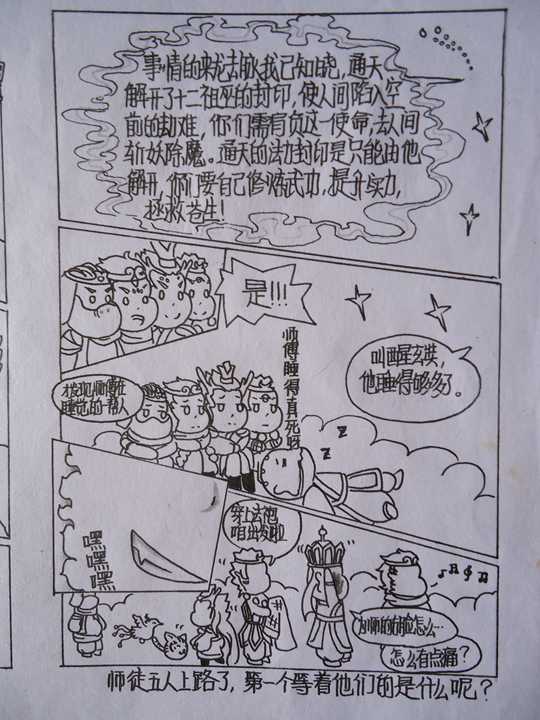 事情的来龙去脉我已知晓，通天
解开了十二祖巫的封印，使人间陷入空
前的劫难，你们需肩负这一使命，去人间
斩妖除魔。通天的法力封印是只能由他
解开，你们要自己修炼武功，提升实力，
拯救苍生！
是!!!
师傅睡得真死呀
叫醒玄奘，
他睡得够多了。
才发现师傅在
睡觉的一帮人
z
z
嘿嘿嘿
穿上法袍
咱出发啦
为师的右脸怎么…
怎么有点痛？
师徒五人上路了，第一个等着他们的是什么呢？